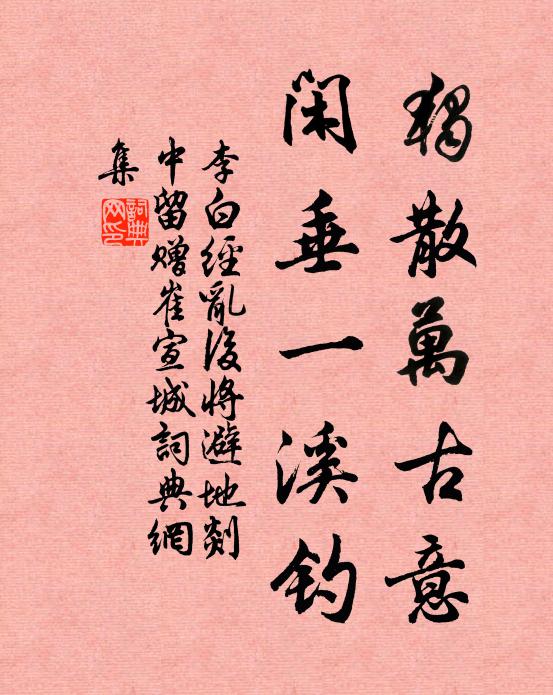 獨散萬古意
閑垂一溪钓
李白經亂後將避地剡
中留赠崔宣城詞典網
集
詞典
网印